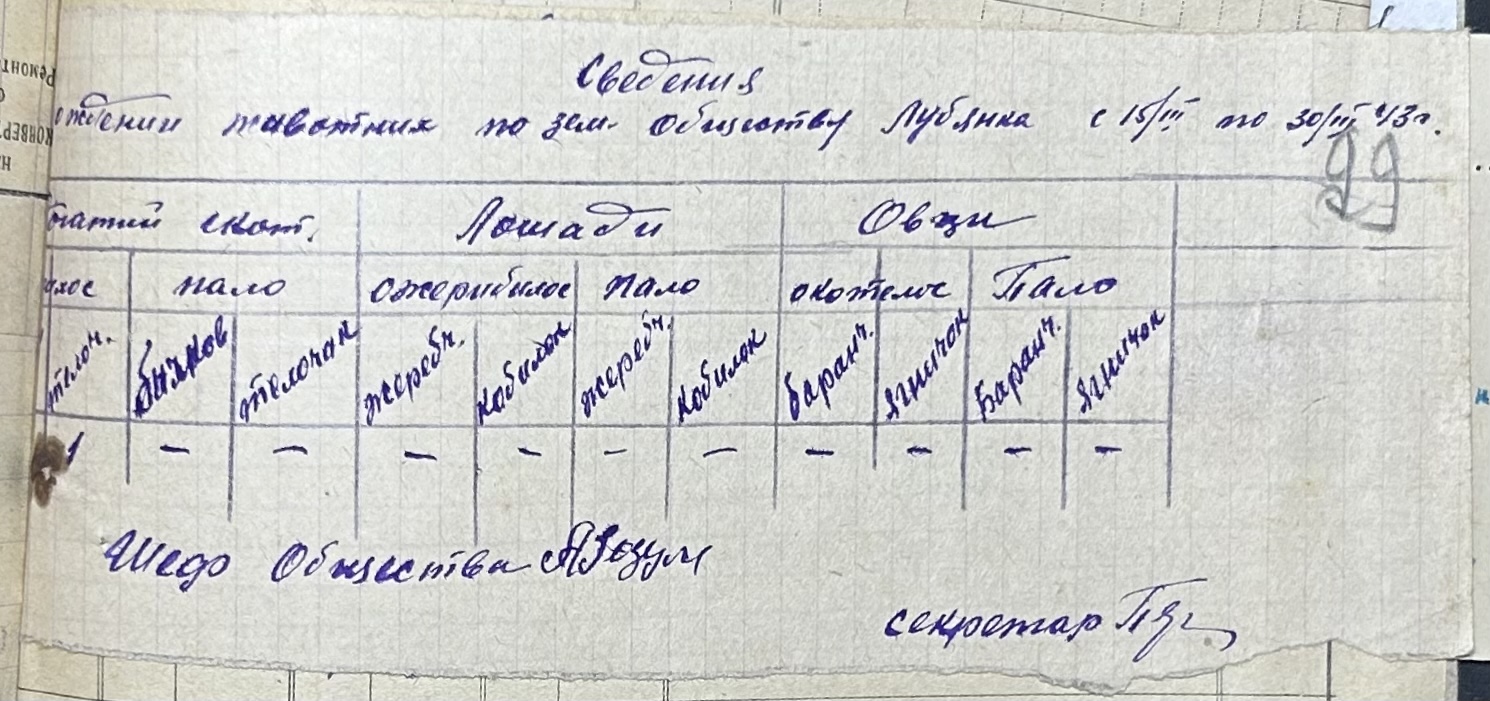 Сведения
ождении животних по зем. обществу Лубянка с 15/III по 30/III 43 г.
99
рогатий скот. Лошади Овци
лос пало ожерибилос пало окотелос Пало
телоч. бичков телочок жеребч. кобилок жеребч. кобилок баранч. ягничок Баранч. ягничок
1 — — — — — — — — — —
Шедо Общества
секретар